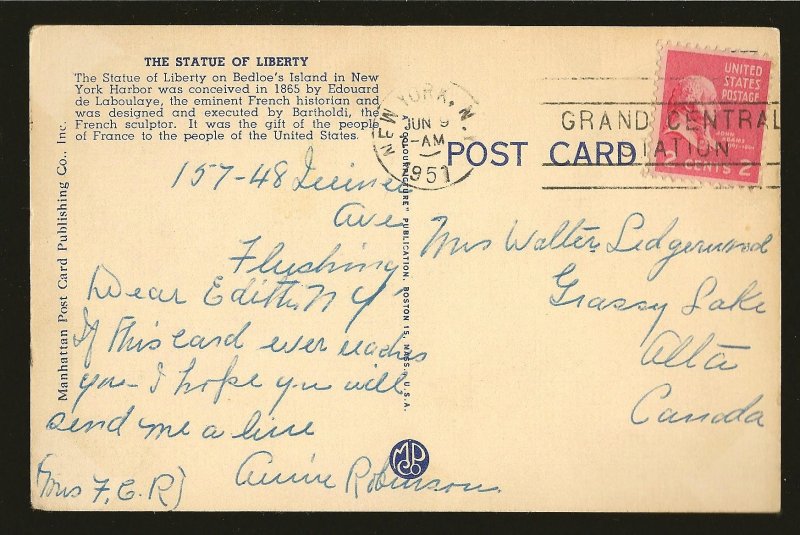 THE STATUE OF LIBERTY
The Statue of Liberty on Bedloe's Island in New
York Harbor was conceived in 1865 by Edouard
de Laboulaye, the eminent French historian and
was designed and executed by Bartholdi, the
French sculptor. It was the gift of the people
of France to the people of the United States.
Manhattan Post Card Publishing Co., Inc.
"A COLOURPICTURE" PUBLICATION, BOSTON 15, MASS., U.S.A.
POST CARD
NEW YORK, N.
JUN 9
-AM
1951
GRAND CENTRAL
STATION
UNITED
STATES
POSTAGE
JOHN
ADAMS
2 CENTS 2
157-48
Ave
Flushing
N Y
Dear Edith
If this card ever reaches
you I hope you will
send me a line
Annie Robinson
(Mrs F. C. R)
Mrs Walter Ledgerwood
Grassy Lake
Alta
Canada
MPCo